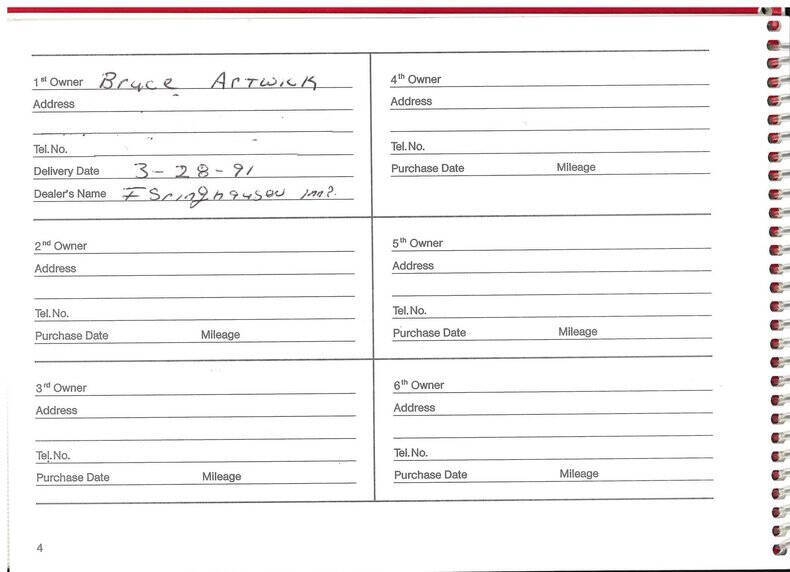 1st Owner Bruce Artwick
Address
Tel. No.
Delivery Date 3-28-91
Dealer's Name
2nd Owner
Address
Tel. No.
Purchase Date Mileage
3rd Owner
Address
Tel. No.
Purchase Date Mileage
4th Owner
Address
Tel. No.
Purchase Date Mileage
5th Owner
Address
Tel. No.
Purchase Date Mileage
6th Owner
Address
Tel. No.
Purchase Date Mileage
4